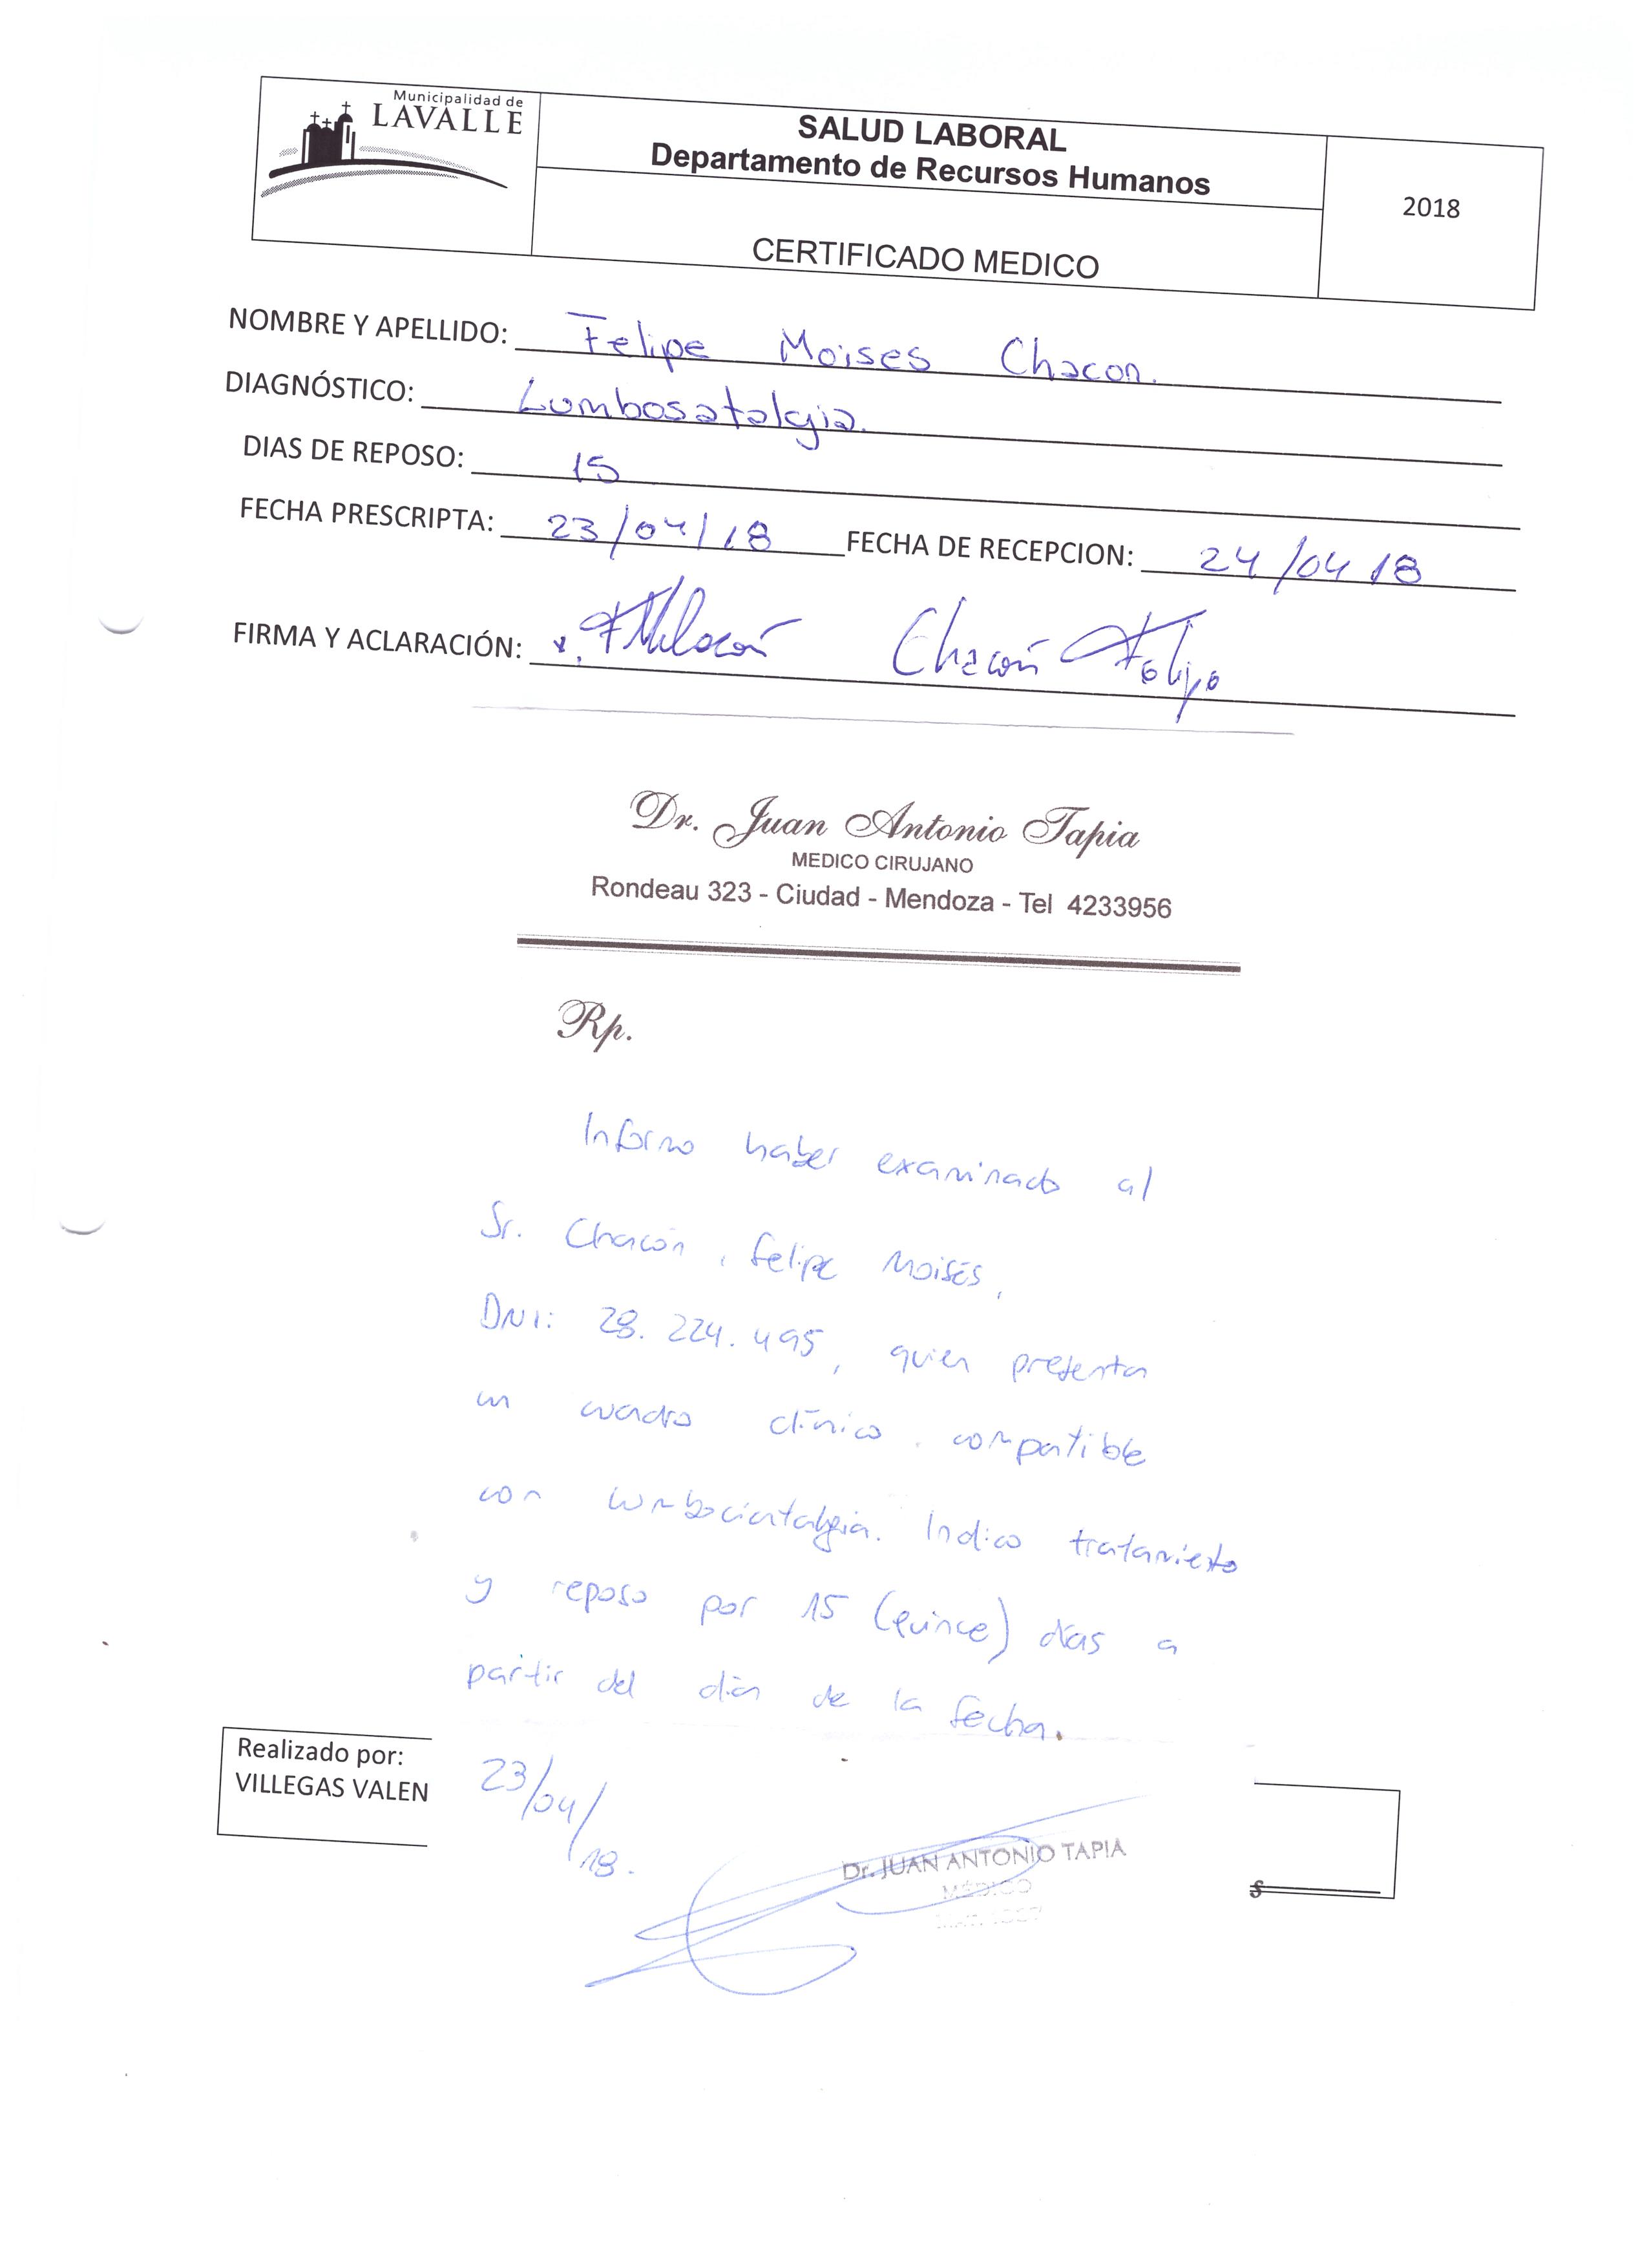 Municipalidad de
LAVALLE
SALUD LABORAL
Departamento de Recursos Humanos
CERTIFICADO MEDICO
2018
NOMBRE Y APELLIDO: Felipe Moises Chacon.
DIAGNÓSTICO: Lumbosatalgia.
DIAS DE REPOSO: 15
FECHA PRESCRIPTA: 23/04/18 FECHA DE RECEPCION: 24/04 18
FIRMA Y ACLARACIÓN: Chacón Felipe
Dr. Juan Antonio Tapia
MEDICO CIRUJANO
Rondeau 323 - Ciudad - Mendoza - Tel 4233956
Rp.
Informo haber examinado al
Sr. Chacón, Felipe Moisés,
DNI: 28.224.495, quien presenta
un cuadro clínico compatible
con lumbociatalgia. Indico tratamiento
y reposo por 15 (quince) días a
partir del día de la fecha.
Realizado por:
VILLEGAS VALEN
23/04/18.
Dr. JUAN ANTONIO TAPIA
MÉDICO